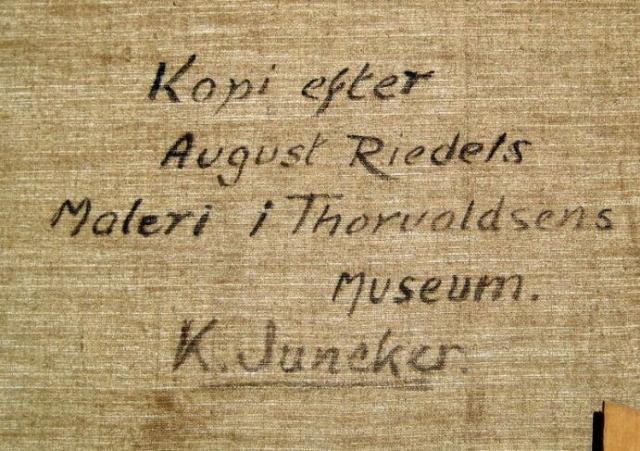 Kopi efter
August Riedels
Maleri i Thorvaldsens
Museum.
K. Juncker.